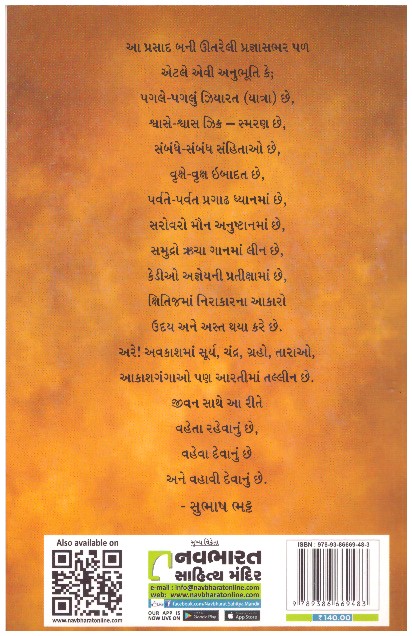 આ પ્રસાદ બની ઊતરેલી પ્રજ્ઞાસભર પળ
એટલે એવી અનુભૂતિ કે;
પગલે-પગલું ઝિયારત (યાત્રા) છે,
શ્વાસે-શ્વાસ ઝિક્ર – સ્મરણ છે,
સંબંધે-સંબંધ સંહિતાઓ છે,
વૃક્ષે-વૃક્ષ ઇબાદત છે,
પર્વતે-પર્વત પ્રગાઢ ધ્યાનમાં છે,
સરોવરો મૌન અનુષ્ટાનમાં છે,
સમુદ્રો ઋચા ગાનમાં લીન છે,
કેડીઓ અજ્ઞેયની પ્રતીક્ષામાં છે,
ક્ષિતિજમાં નિરાકારના આકારો
ઉદય અને અસ્ત થયા કરે છે.
અરે! અવકાશમાં સૂર્ય, ચંદ્ર, ગ્રહો, તારાઓ,
આકાશગંગાઓ પણ આરતીમાં તલ્લીન છે.
જીવન સાથે આ રીતે
વહેતા રહેવાનું છે,
વહેવા દેવાનું છે
અને વહાવી દેવાનું છે.
- સુભાષ ભટ્ટ
Also available on
મુખ્ય વિક્રેતા
નવભારત
સાહિત્ય મંદિર
e-mail : info@navbharatonline.com
web: www.navbharatonline.com
facebook.com/Navbharat Sahitya Mandir
OUR APP IS
NOW LIVE ON
Google Play
App Store
ISBN : 978-93-86669-48-3
9 789386 669483
₹140.00